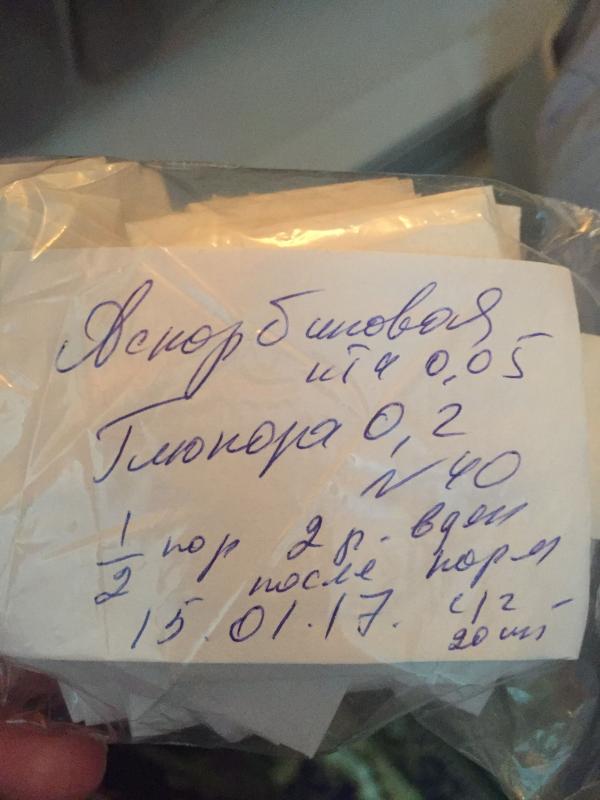 Аскорбиновая
к-та 0,05
Глюкоза 0,2
N 40
1/2 пор 2 р. в день
после корм
15.01.17.
20 шт